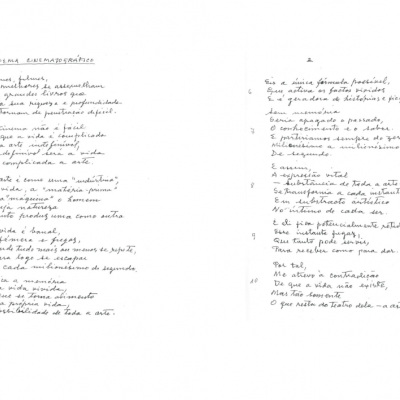 EMA CINEMATOGRÁFICO
mes, filmes,
melhores se assemelham
grandes livros que
a sua riqueza e profundidade
tornam de penetração difícil.
cinema não é fácil
que a vida é complicada
arte
definível será a vida
complicada a arte.
arte é como uma "indústria",
vida, a "matéria-prima"
"máquina" o homem
natureza
produz uma como outra.
vida é banal,
efémera e fugaz,
tudo mais ou menos se repete,
logo se escapar
cada milionésimo de segundo.
a memória
a vida vivida,
que se torna alimento
própria vida,
possibilidade de toda a arte.
2
6
Eis a única fórmula possível,
Que activa os factos vividos
E é geradora de histórias e
7
Sem memória
Seria apagado o passado,
O conhecimento e o saber.
E partiríamos sempre do
Milionésimo a milionésimo
De segundo.
8
E assim,
A expressão vital
— Substância de toda a arte
Se transforma a cada instante
Em substracto artístico
No íntimo de cada ser.
9
E ali fica potencialmente
Esse instante fugaz,
Que tanto pode servir,
Para receber como para dar.
10
Por tal,
Me atrevo à contradição
De que a vida não existe,
Mas tão somente
O que resta do teatro dela — a